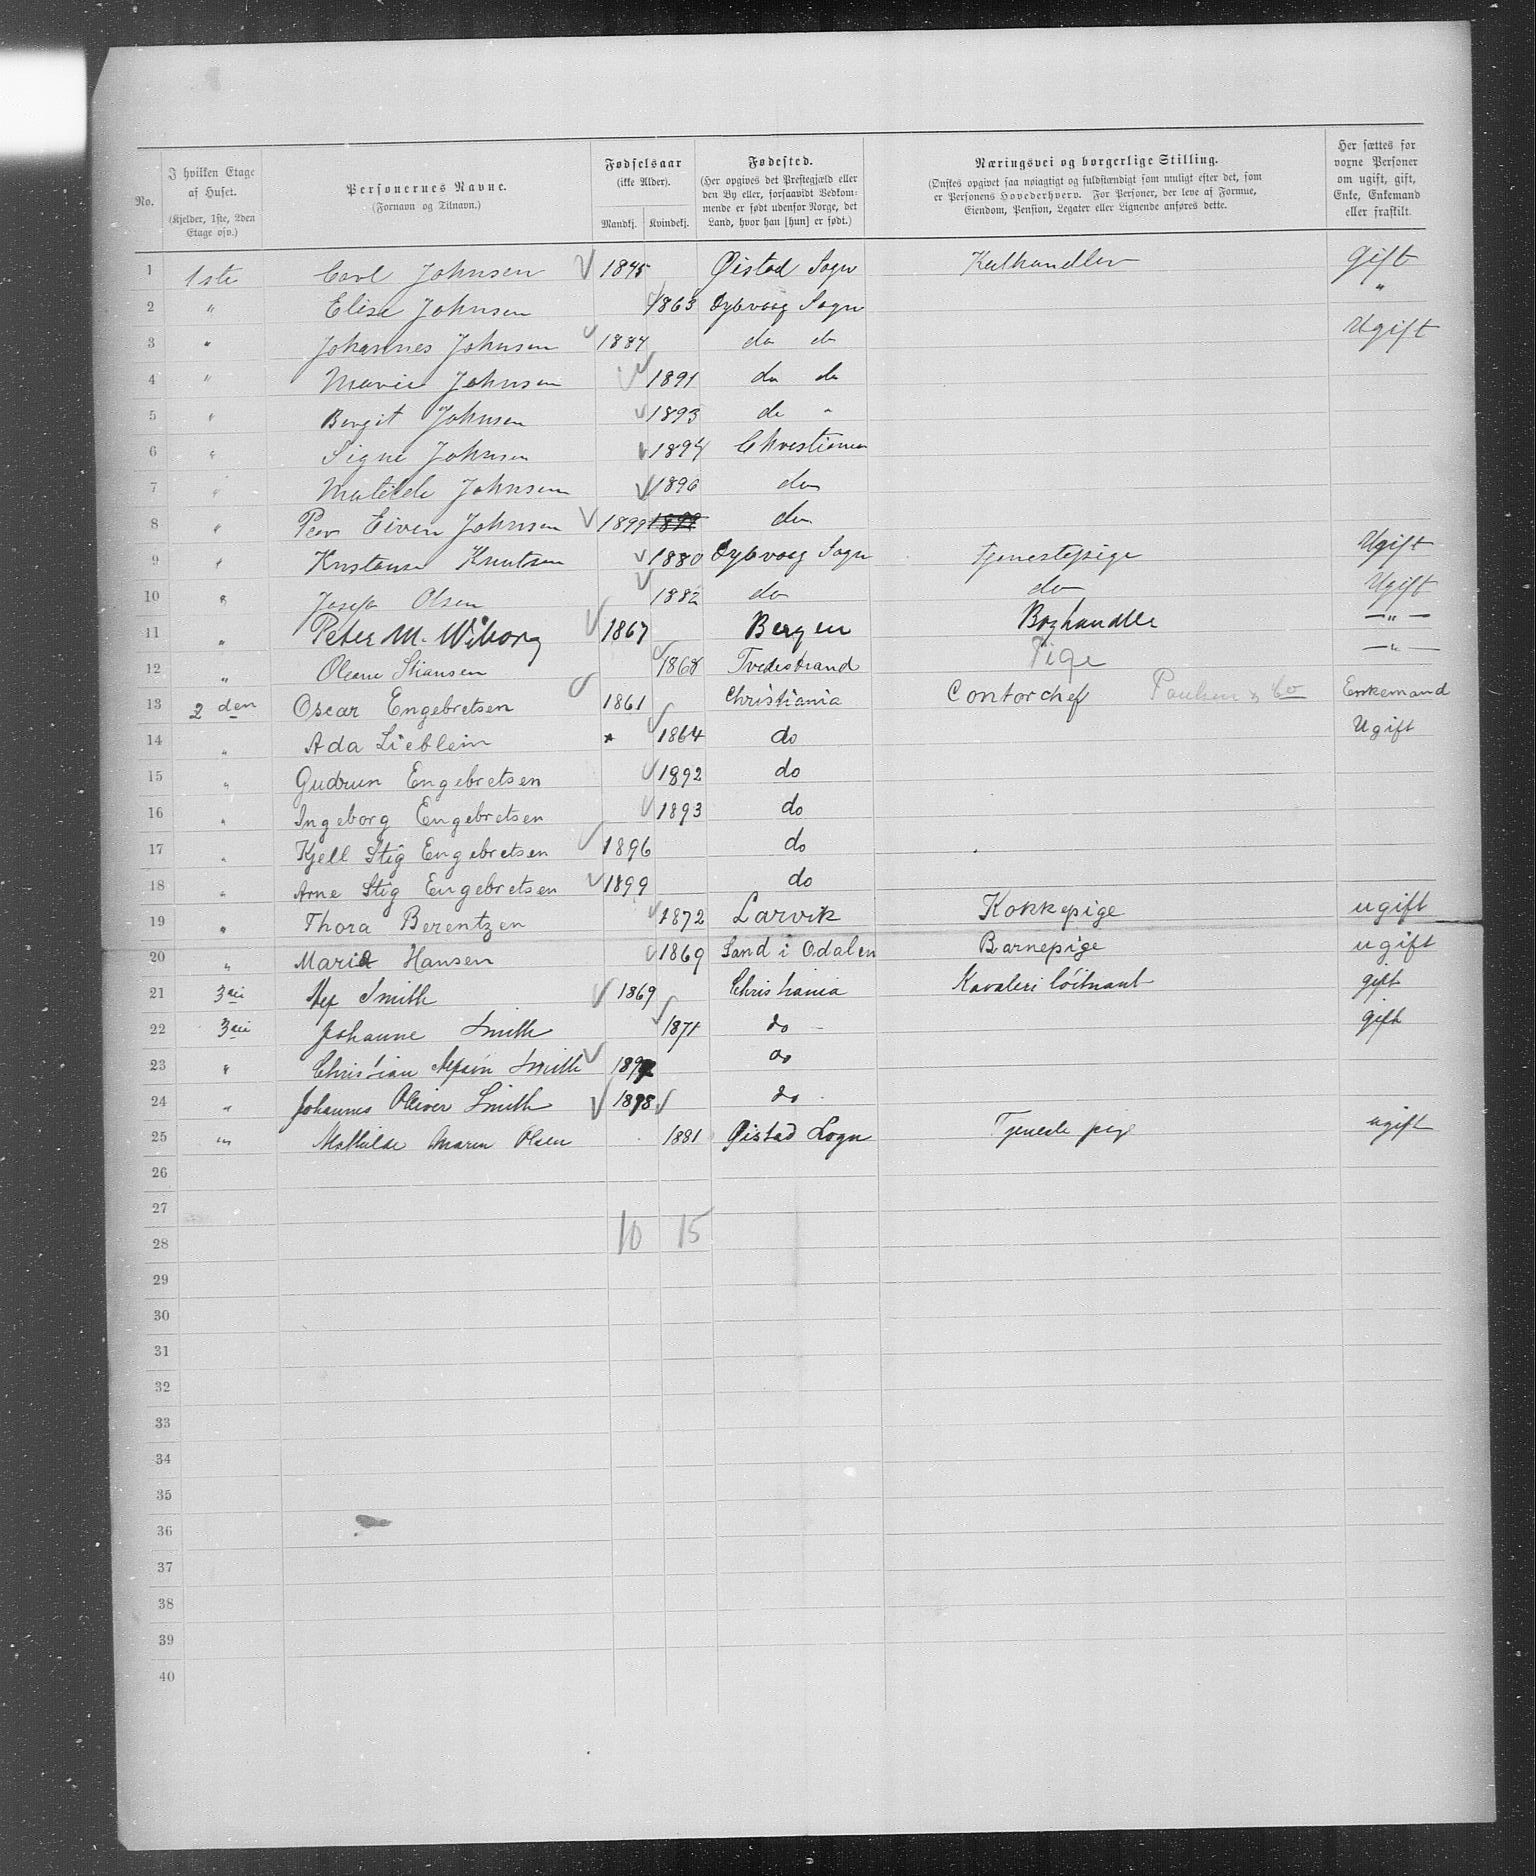 No.
I hvilken Etage af Huset. (Kjelder, 1ste, 2den Etage osv.)
Personernes Navne. (Fornavn og Tilnavn.)
Fødselsaar (ikke Alder). Mandkj. Kvindekj.
Fødested. (Her opgives det Prestegjæld eller den By eller, forsaavidt Vedkommende er født udenfor Norge, det Land, hvor han [hun] er født.)
Næringsvei og borgerlige Stilling. (Ønskes opgivet saa nøiagtigt og fuldstændigt som muligt efter det, som er Personens Hovederhverv. For Personer, der leve af Formue, Eiendom, Pension, Legater eller Lignende anføres dette.)
Her sættes for voxne Personer om ugift, gift, Enke, Enkemand eller fraskilt.
1 1ste Carl Johnsen 1845 Øistad Sogn Kulhandler gift
2 " Elise Johnsen 1863 Dybvaag Sogn "
3 " Johannes Johnsen 1884 do do Ugift
4 " Marie Johnsen 1891 do do
5 " Bergit Johnsen 1893 do "
6 " Signe Johnsen 1894 Christiania
7 " Matilde Johnsen 1896 do
8 " Peer Eiven Johnsen 1899 do
9 " Knutsen 1880 Dybvaag Sogn Tjenestepige Ugift
10 " Josefa Olsen 1882 do do Ugift
11 " Peter M. Wiborg 1867 Bergen Boghandler — " —
12 " Oleane 1868 Tvedestrand Pige — " —
13 2den Oscar Engebretsen 1861 Christiania Contorchef Paulsen & Co Enkemand
14 " Ada Lieblein 1864 do Ugift
15 " Gudrun Engebretsen 1892 do
16 " Ingeborg Engebretsen 1893 do
17 " Kjell Stig Engebretsen 1896 do
18 " Arne Stig Engebretsen 1899 do
19 " Thora Berentzen 1872 Larvik Kokkepige ugift
20 " Maria Hansen 1869 Sand i Odalen Barnepige ugift
21 3die Smith 1869 Christiania Kavaleri løitnant gift
22 3die Johanne Smith 1871 do gift
23 " Christian Smith do
24 " Johannes Oliver Smith 1898 do
25 " Mathilde Maren Olsen 1881 Øistad Sogn Tjeneste pige ugift
26
27
28 10 15
29
30
31
32
33
34
35
36
37
38
39
40